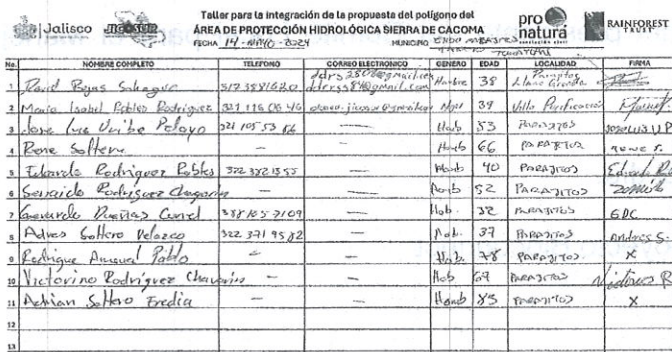 Jalisco
Taller para la integración de la propuesta del polígono del
ÁREA DE PROTECCIÓN HIDROLÓGICA SIERRA DE CACOMA
FECHA 14-MAYO-2024 MUNICIPIO EJIDO PARAJITOS
TOMATLAN
pro natura
RAINFOREST TRUST
No. NOMBRE COMPLETO TELEFONO CORREO ELECTRONICO GENERO EDAD LOCALIDAD FIRMA
1 David Rojas Sahagun 317 3881620 Hombre 38 Parajitos Llano Grande
2 Maria Isabel Robles Rodriguez 321 116 06 46 39 Villa Purificación
3 Jose Luis Uribe Pelayo 321 105 53 66 — Homb 53 PARAJITOS JOSE LUIS U P
4 Rene Soltero — — Homb 66 PARAJITOS RENE S.
5 Eduardo Rodriguez Robles 322 352 1355 — Homb 40 PARAJITOS
6 Rodriguez — — Homb 52 PARAJITOS
7 Gerardo Dueñas — Hob. 32 PARAJITOS GDC
8 Soltero Velazco 322 371 9582 — Hob. 37 PARAJITOS Andres S.
9 Rodrigue Pablo — — Hob. 78 PARAJITOS X
10 Victorino Rodríguez Chavarin — — Hob 69 PARAJITOS Victorino R
11 Adrian Soltero Eredia — — Homb 83 PARAJITOS X
12
13